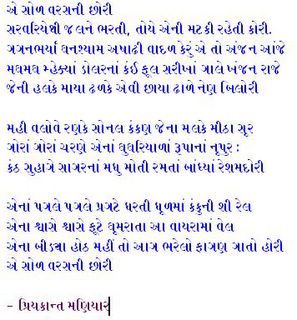 એ સોળ વરસની છોરી
સરવરિયેથી જલને ભરતી, તોયે એની મટકી રહેતી કોરી.
ગગનભર્યા ઘનશ્યામ અષાઢી વાદળ કેરું એ તો અંજન આંજે
મઘમઘ મ્હેક્યાં ડોલરનાં કંઈ ફૂલ સરીખાં ગાલે ખંજન રાજે
જેની હલકે માયા ઢળકે એવી છાયા ઢાળે નેણ બિલોરી
મહી વલોવે રણકે સોનલ કંકણ જેના મલકે મીઠા સૂર
ગોરાં ગોરાં ચરણે એનાં ઘુઘરિયાળાં રૂપાનાં નૂપૂર :
કંઠ સુહાગે સાગરનાં મધુ મોતી રમતાં બાંધ્યાં રેશમદોરી
એનાં પગલે પગલે પ્રગટે ધરતી ધૂળમાં કંકુની શી રેલ
એના શ્વાસે શ્વાસે ફૂટે ઘૂમરાતા આ વાયરામાં વેલ
એના બીડ્યા હોઠ મહીં તો આગ ભરેલો ફાગણ ગાતો હોરી
એ સોળ વરસની છોરી
- પ્રિયકાન્ત મણિયાર